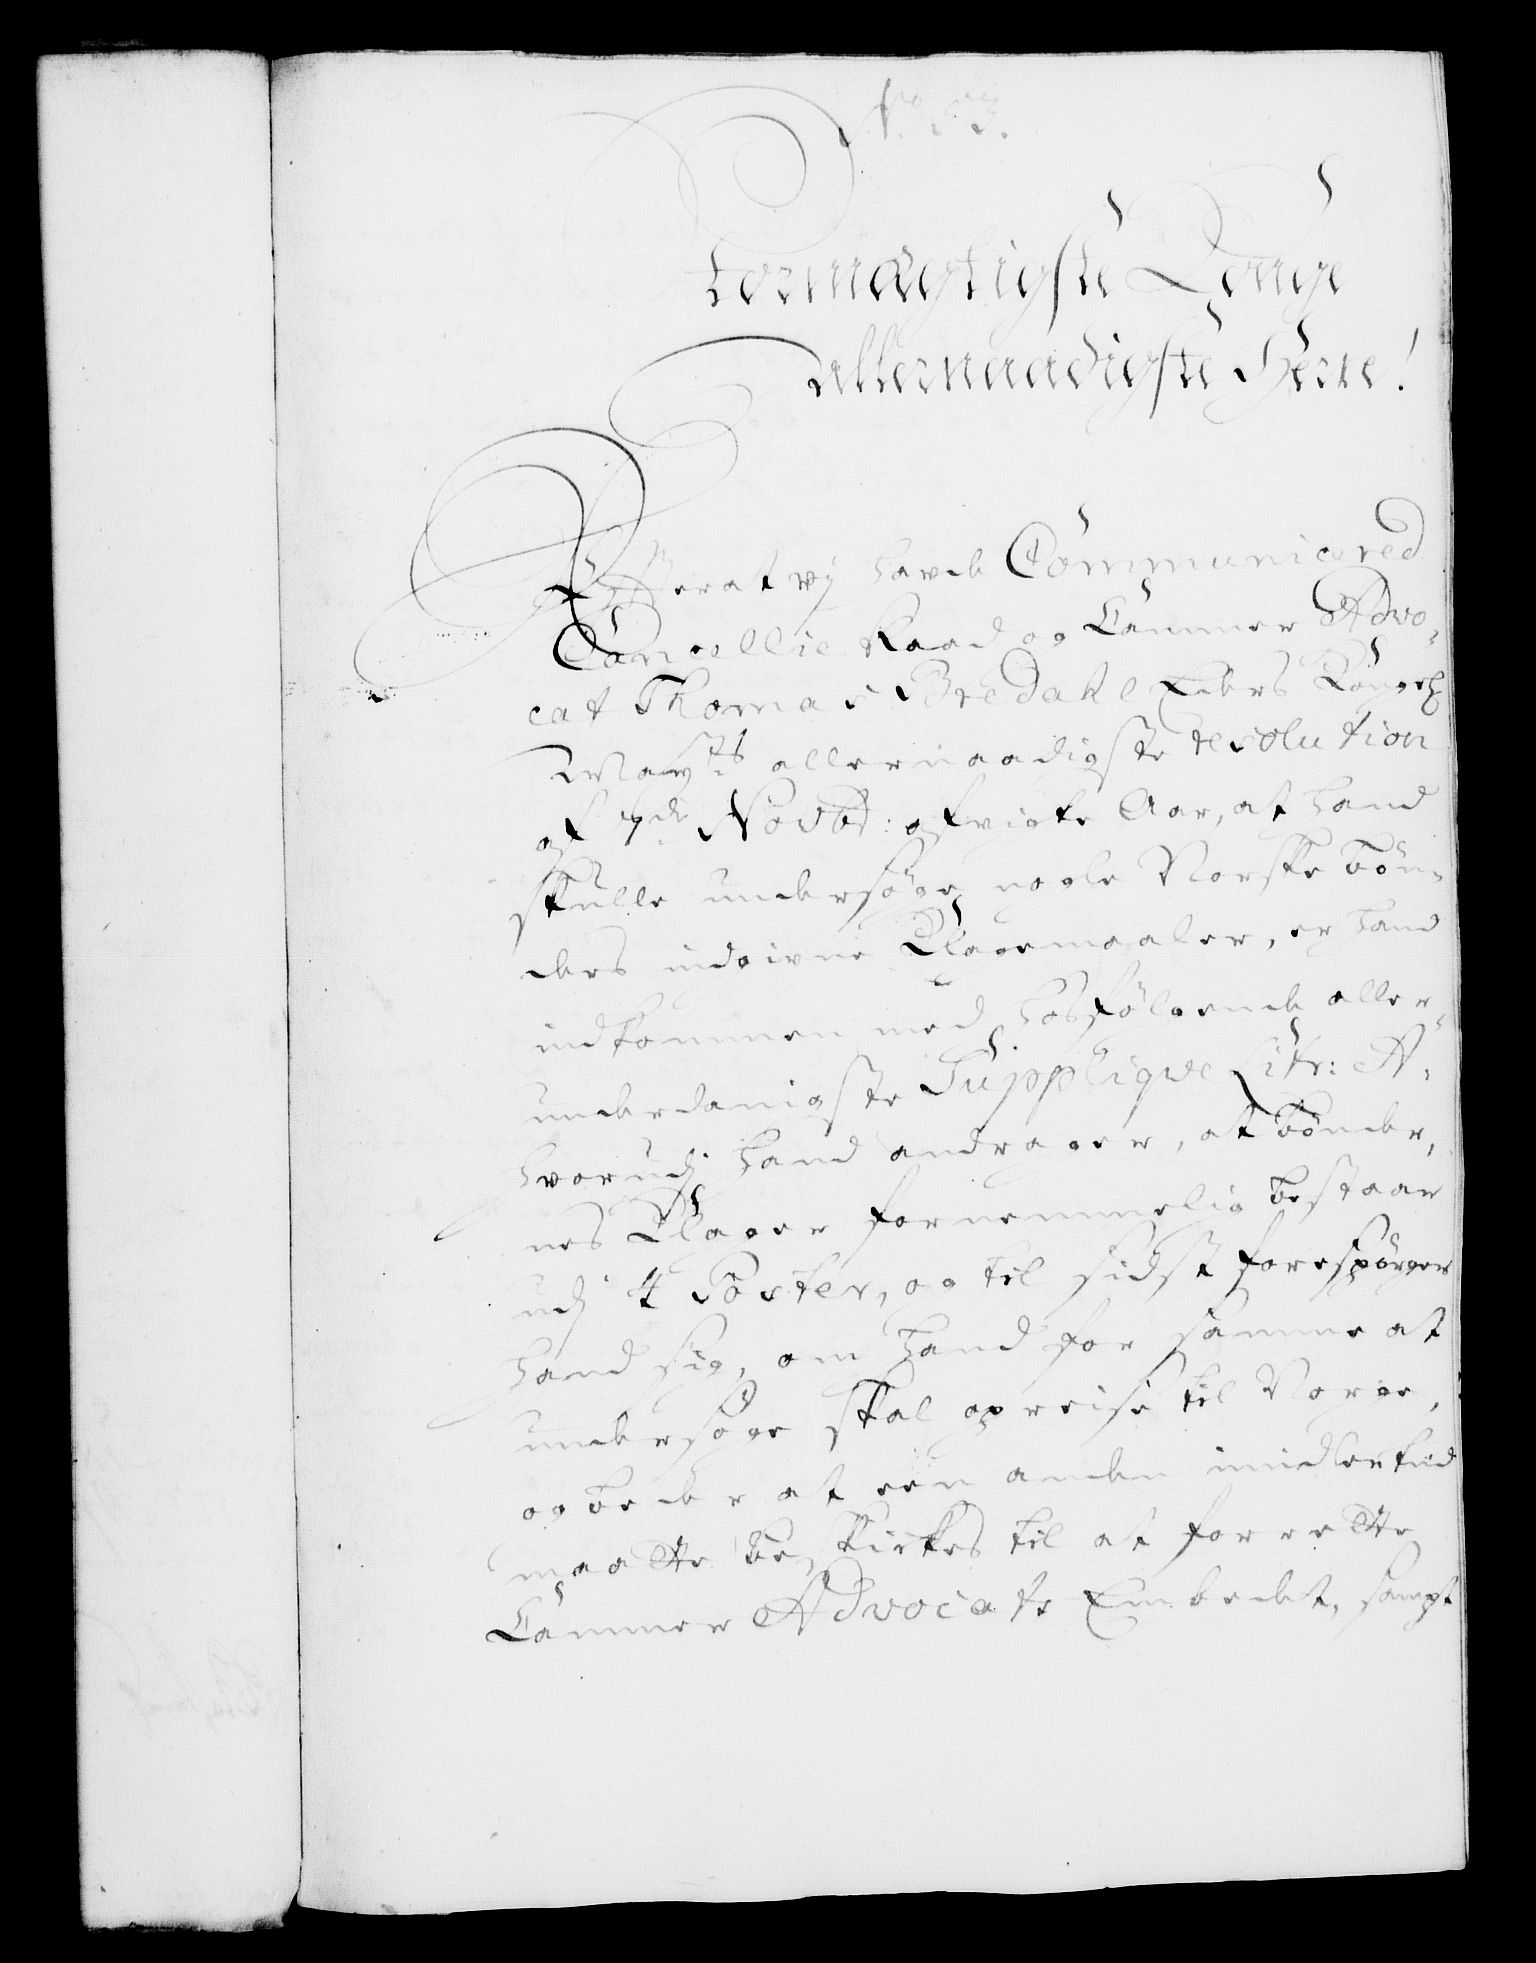 No 53.
Stormægtigste Konge
allernaadigste Herre!
Efterat vj hafde Communicered
Cancellie Raad og Cammer Advo-
cat Thomas Bredahl Eders Kongel
Mayts allernaadigste resolution
af 7de Novbr: afvigte Aar, at hand
skulle undersøge nogle Norske bøn-
ders indgivne Klagemaaler, er hand
indkommen med hosfølgende aller-
underdanigste Supplique Litr: A.
hvorudj hand andrager, at bønder-
nes Klager fornemmelig bestaar
udj 4 Poster, og til sidst forespørger
hand sig, om hand for samme at
undersøge skal opreise til Norge,
og beder at een anden imidlertiid
maatte beskickes til at forrette
Cammer Advocats Embedet, sampt